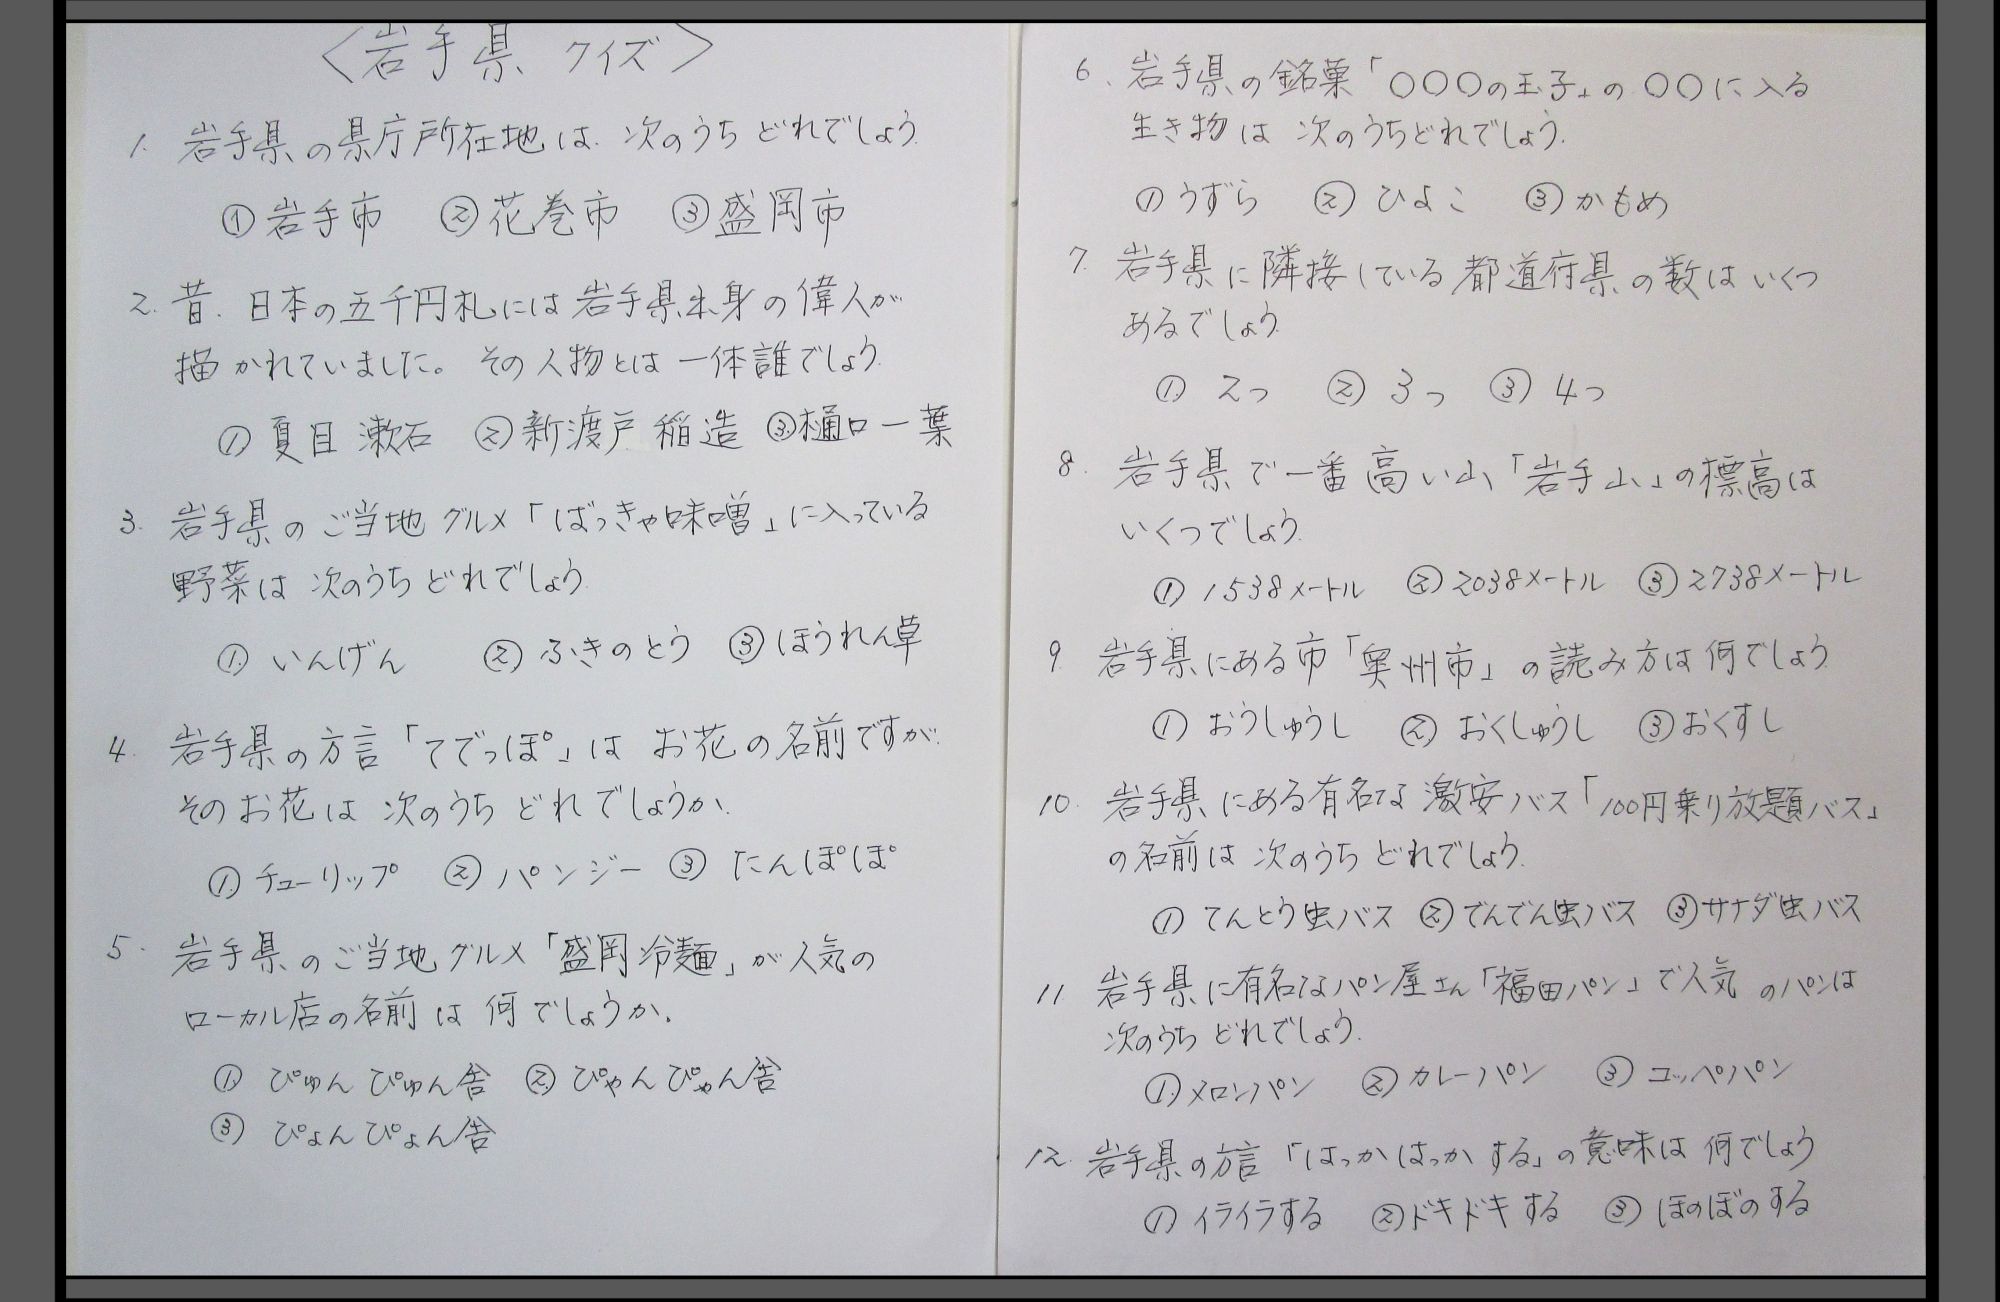 〈岩手県 クイズ〉
1. 岩手県の県庁所在地は、次のうち どれでしょう。
① 岩手市 ② 花巻市 ③ 盛岡市
2. 昔、日本の五千円札には 岩手県出身の偉人が
描かれていました。その人物とは 一体誰でしょう。
① 夏目 漱石 ② 新渡戸 稲造 ③ 樋口 一葉
3. 岩手県の ご当地 グルメ「ばっきゃ味噌」に入っている
野菜は 次のうち どれでしょう。
① いんげん ② ふきのとう ③ ほうれん草
4. 岩手県の方言「てでっぽ」は お花の名前ですが、
そのお花は 次のうち どれでしょうか。
① チューリップ ② パンジー ③ たんぽぽ
5. 岩手県のご当地 グルメ「盛岡冷麺」が人気の
ローカル店の名前は 何でしょうか。
① ぴゅんぴゅん舎 ② ぴゃんぴゃん舎
③ ぴょんぴょん舎
6. 岩手県の銘菓「〇〇〇の玉子」の〇〇に入る
生き物は 次のうちどれでしょう。
① うずら ② ひよこ ③ かもめ
7. 岩手県に隣接している都道府県の数は いくつ
あるでしょう。
① 2つ ② 3つ ③ 4つ
8. 岩手県で一番高い山、「岩手山」の標高は
いくつでしょう。
① 1538メートル ② 2038メートル ③ 2738メートル
9. 岩手県にある市「奥州市」の読み方は 何でしょう。
① おうしゅうし ② おくしゅうし ③ おくすし
10. 岩手県にある有名な 激安バス「100円乗り放題バス」
の名前は 次のうち どれでしょう。
① てんとう虫バス ② でんでん虫バス ③ サナダ虫バス
11. 岩手県に有名なパン屋さん「福田パン」で人気のパンは
次のうち どれでしょう。
① メロンパン ② カレーパン ③ コッペパン
12. 岩手県の方言「はっかはっかする」の意味は 何でしょう
① イライラする ② ドキドキする ③ ほのぼのする